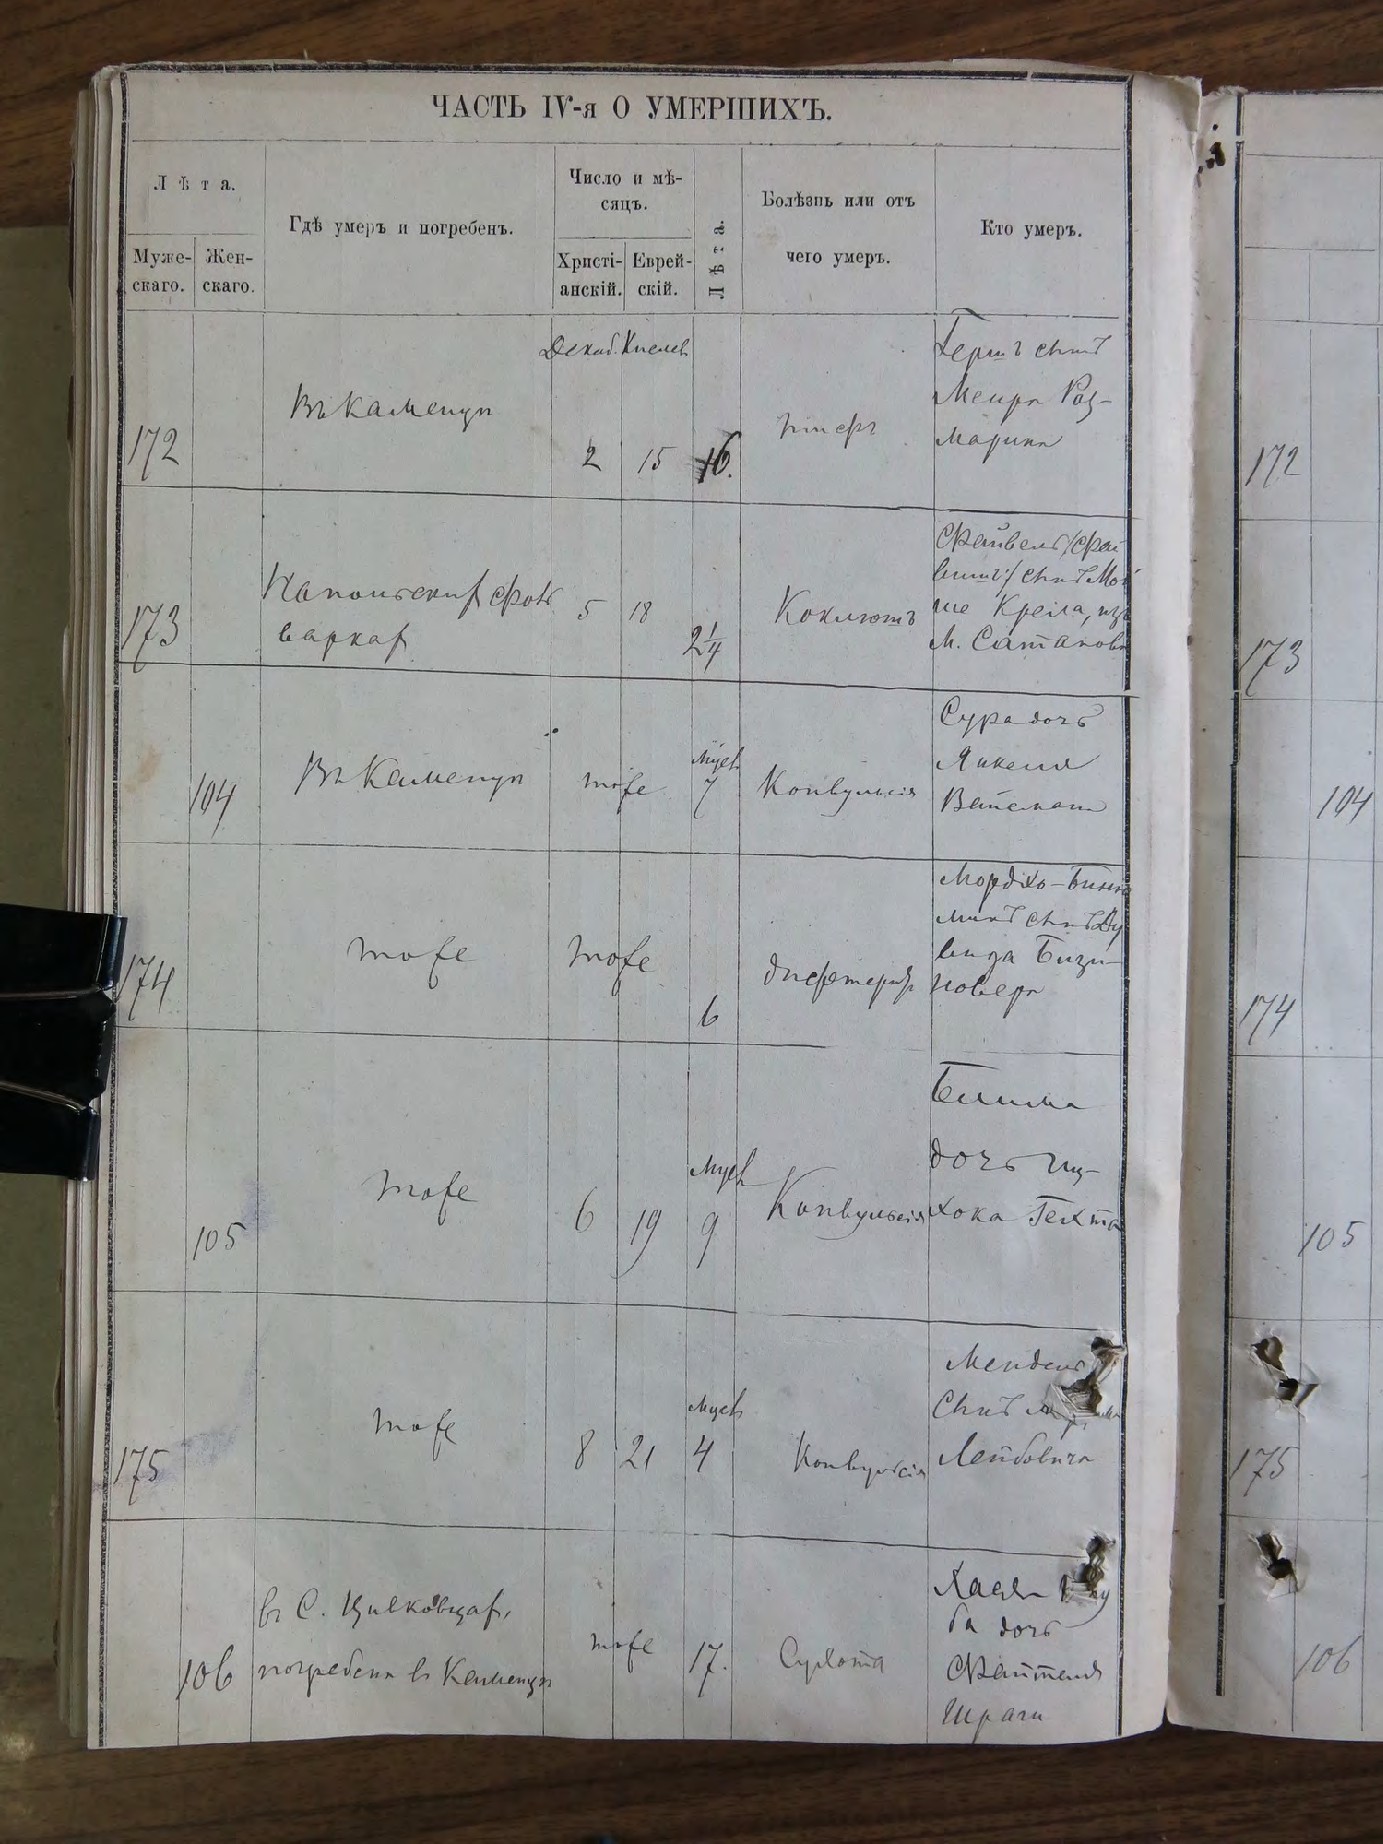 ЧАСТЬ IV-я О УМЕРШИХЪ.
Лѣта.
Муже-
скаго.
Жен-
скаго.
Гдѣ умеръ и погребенъ.
Число и мѣ-
сяцъ.
Христі-
анскій.
Еврей-
скій.
Лѣта.
Болѣзнь или отъ
чего умеръ.
Кто умеръ.
172
Въ Каменцѣ
Декаб.
2
Кислев
15
16.
Гершъ сынъ
Меира Роз-
марина
172
173
фоль
варках
5
18
2 1/4
Коклюшъ
Файвель/Фай
вишъ/ сынъ Мой
ше Крейга, изъ
м. Сатанова
173
104
Въ Каменцѣ
тоже
Мцев
7
Конвульсія
Сура дочь
Янкеля
Вайсмана
104
174
тоже
тоже
6
дифтерит
Мордхо-Бинья
минъ сынъ Ду
вида Бизи-
новера
174
105
тоже
6
19
Мцев
9
Конвульсія
Бейла
дочь Иц-
хока Гехта
105
175
тоже
8
21
Мцев
4
Конвульсія
Мендель
Сынъ
Лейбовича
175
106
въ С. Цивковцах,
погребена въ Каменцѣ
тоже
17.
Сухота
Хая
ба дочь
Файтеля
Шраги
106